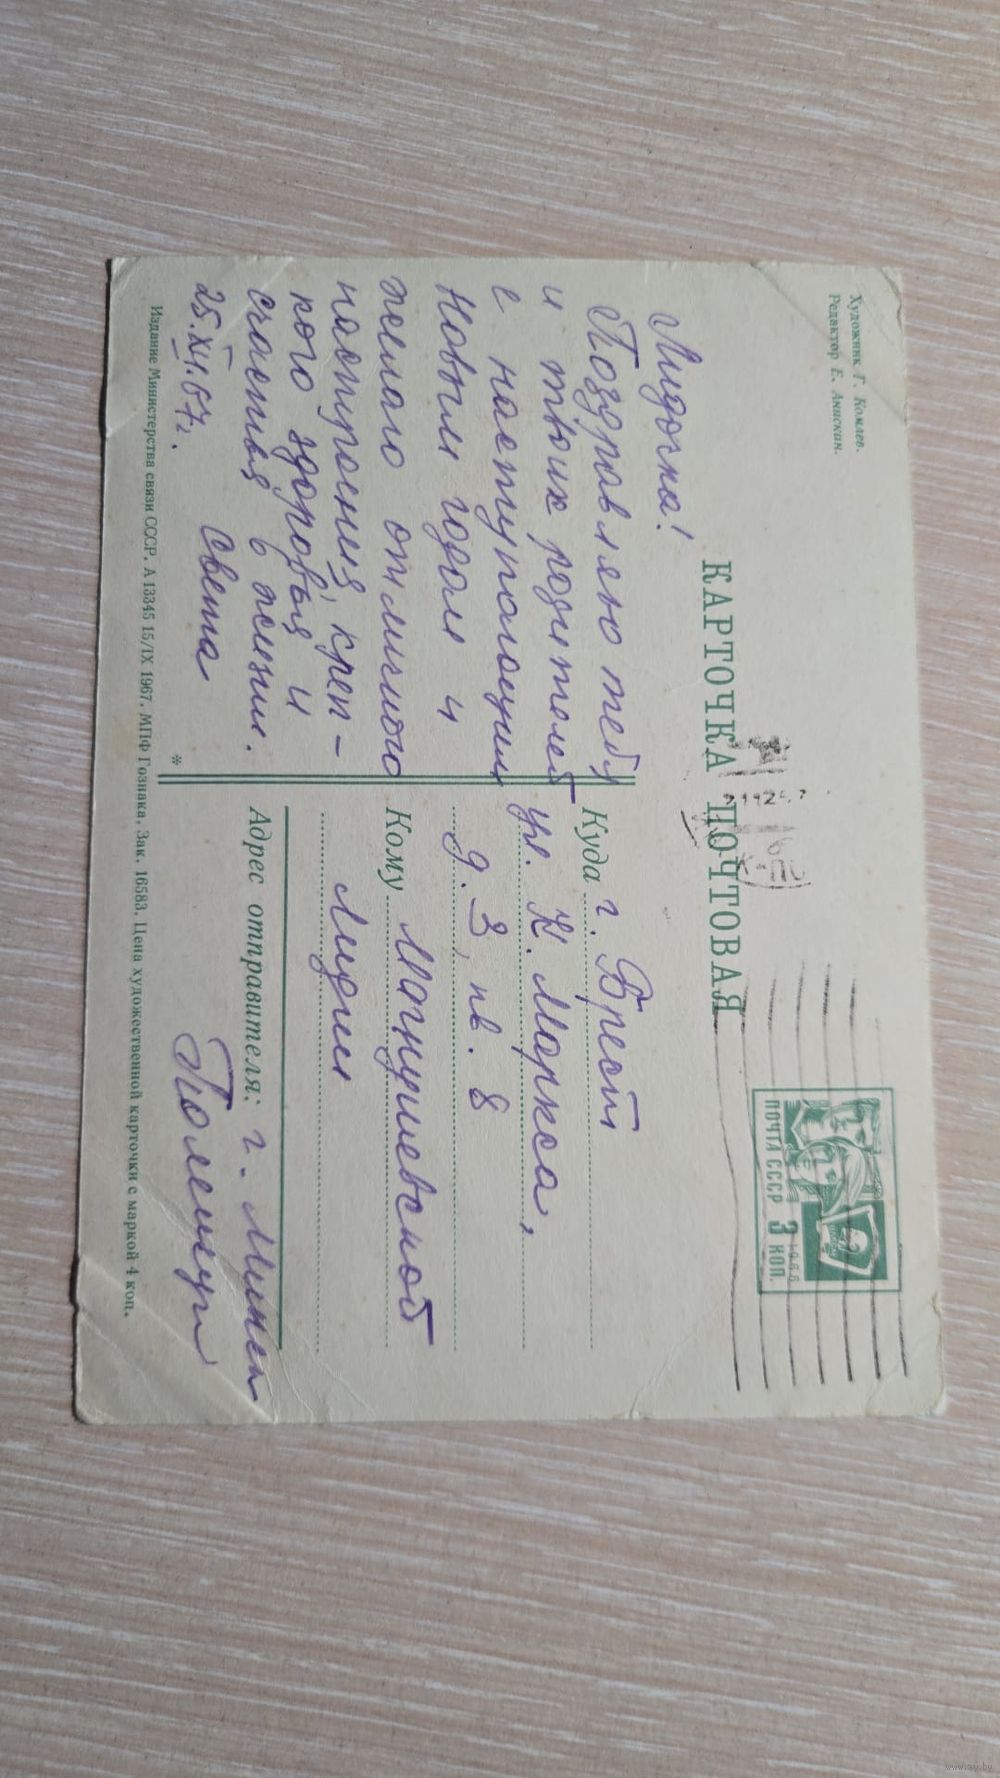 Художник Г. Комлев.
Редактор Е. Анискин.
КАРТОЧКА ПОЧТОВАЯ
ПОЧТА СССР 3 КОП.
1966
Лидочка!
Поздравляю тебя
и твоих родителей
с наступающим
Новым годом и
желаю отличного
настроения, креп-
кого здоровья и
счастья в жизни.
25.XII.67г. Света
Куда г. Брест
ул. К. Маркса,
д. 3, кв. 8
Кому Магнушевской
Лидии
Адрес отправителя: г. Минск
Издание Министерства связи СССР. А 13345 15/IX 1967. МПФ Гознака. Зак. 16583. Цена художественной карточки с маркой 4 коп.
*
www.ay.by